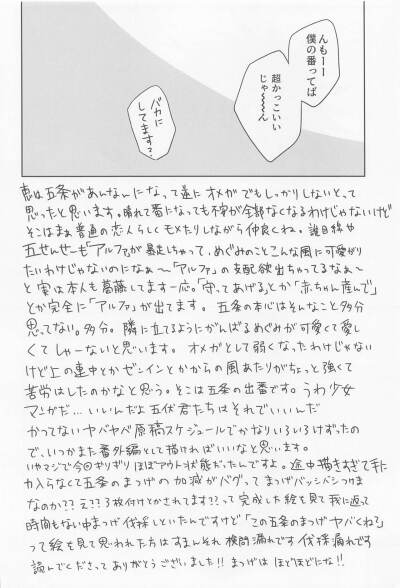 んもーー
僕の番ってば
超かっこいい
じゃ〜〜〜ん
バカに
してます?
恵は五条があんなんになって逆に オメガ でもしっかりしないとって
思ったと思います。晴れて番になっても不安が全部なくなるわけじゃないけど
そこはまぁ普通の恋人らしくモメたりしながら仲良くね。
五せんせーも「アルファ」が暴走しちゃって、めぐみのことこんな風に可愛がり
たいわけじゃないのになぁ〜「アルファ」の支配欲出ちゃってるなぁ〜
と実は本人も葛藤してます一応。「守ってあげる」とか「赤ちゃん産んで」
とか完全に「アルファ」が出てます。五条の本心はそんなこと多分
思ってない。多分。隣に立てるようにがんばるめぐみが可愛くて愛し
くてしゃーないと思います。オメガとして弱くなったわけじゃない
けど上の連中とかゼンインとかからの風あたりがちょっと強くて
苦労はしたのかなと思う。そこは五条の出番です。うわ少女
マンガだ…いいんだよ五伏君たちはそれでいいんだ
かつてないヤバヤバ原稿スケジュールでかなりいろいろけずったの
で、いつかまた番外編として描ければいいなと思います。
いやマジで今回ギリギリほぼアウト状態だったんですよ。途中描きすぎて手に
力入らなくて五条のまつげの加減がバグってまつげバッシバシつけま
なのか?? え?? 3枚付けとかされてます?? って完成した絵を見て我に返って
時間もない中まつげ伐採しといたんですけど「この五条のまつげヤバくね?」
って絵を見て思われた方はすまんそれ検問漏れです伐採漏れです
読んでくださってありがとうございました!! まつげはほどほどにな!!